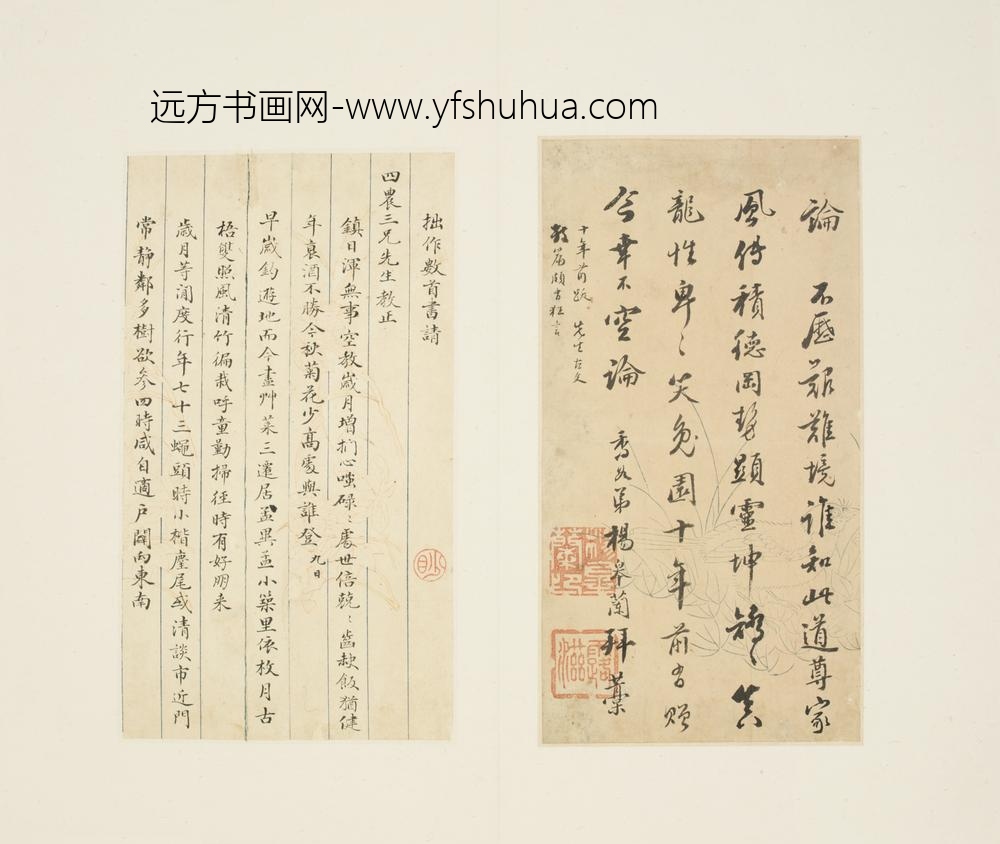 远方书画网-www.yfshuhua.com
論 不歷艱難境誰知此道尊家
風傳積德岡勢顯靈坤矯〻真
龍性卑〻笑兔園十年前有贈
今幸不空論 喬如弟楊皋蘭拜藁
十年前題 先生古文
數篇頗有狂言
拙作數首書請
四農三兄先生教正
鎮日渾無事空教歲月增捫心嗤碌〻處世倍兢〻齒缺飯猶健
年衰酒不勝今秋菊花少高處與誰登 九日
早歲釣遊地而今盡艸萊三遷居孟異孟小築里依枚月古
梧雙照風清竹徧栽呼童勤掃徑時有好朋来
歲月等閒度行年七十三蠅頭時小楷麈尾或清談市近門
常靜鄰多樹欲參四時咸自適戶闢向東南